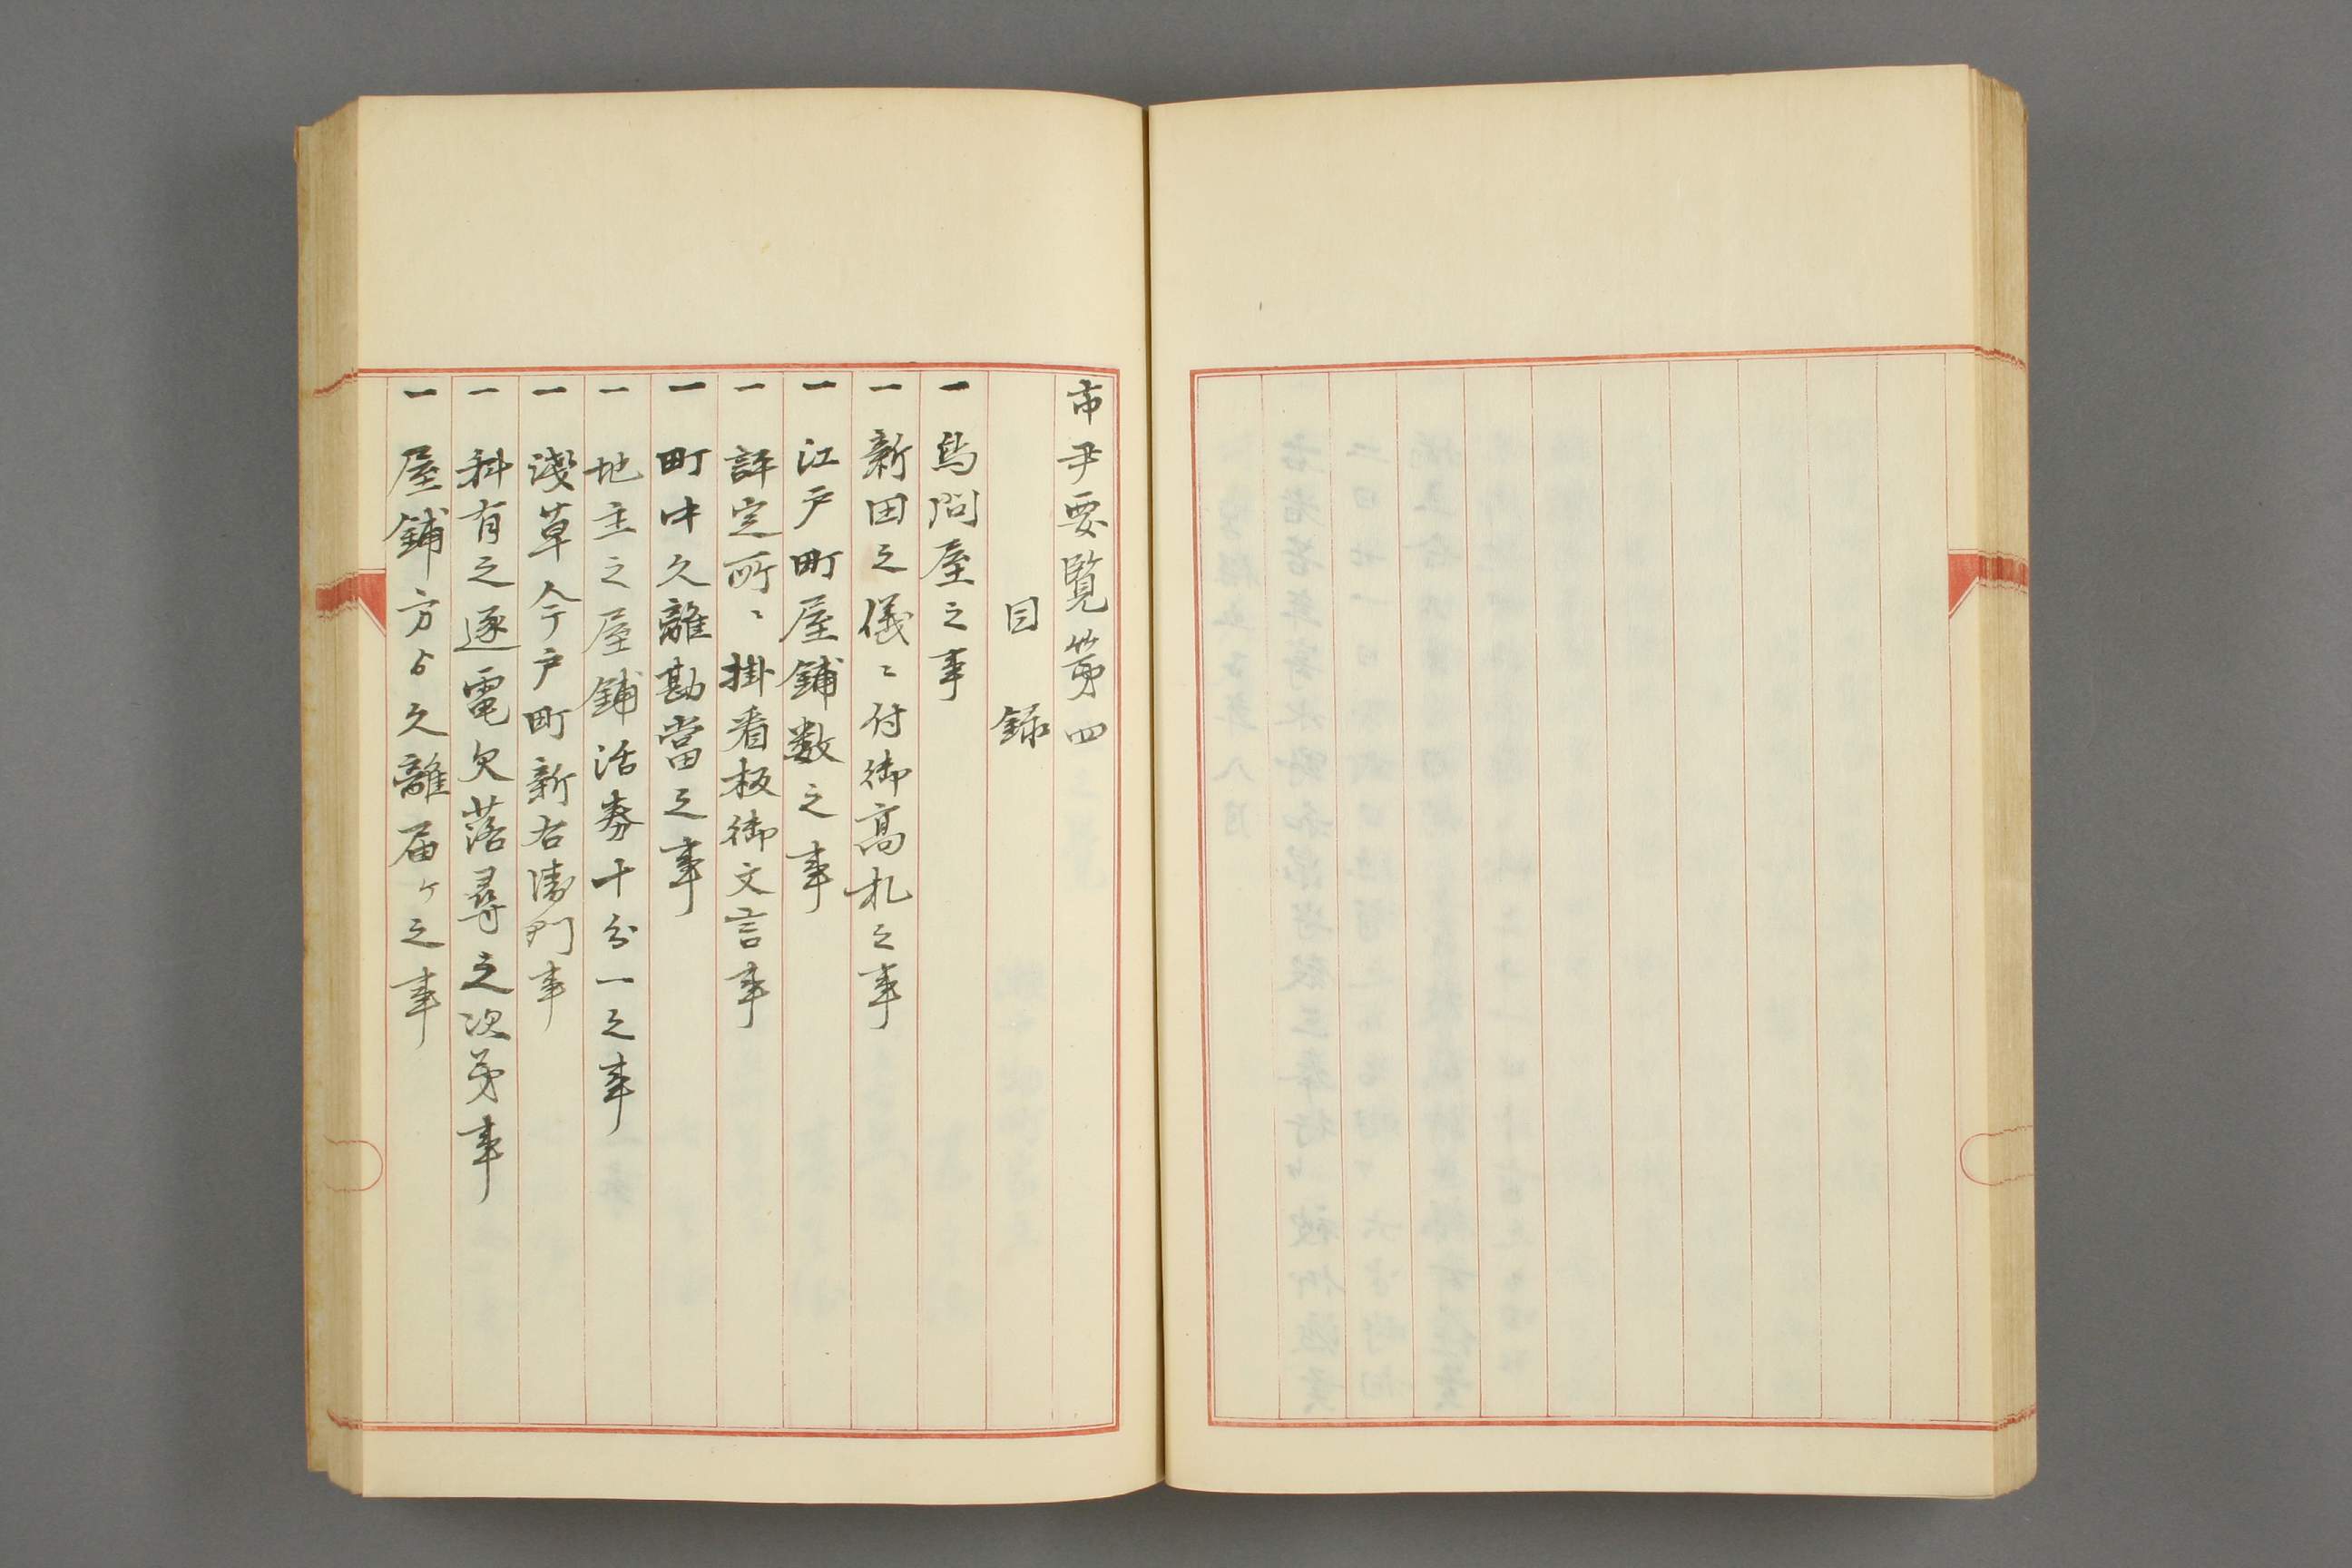 市尹要覧第四
目録
一鳥問屋之事
一新田之儀ニ付御高札之事
一江戸町屋鋪数之事
一評定所ニ掛看板御文言事
一町中久離勘當之事
一地主之屋鋪活券十分一之事
一浅草今戸町新右衛門事
一科有之逐電欠落尋之次第事
一屋鋪方ゟ久離届ケ之事